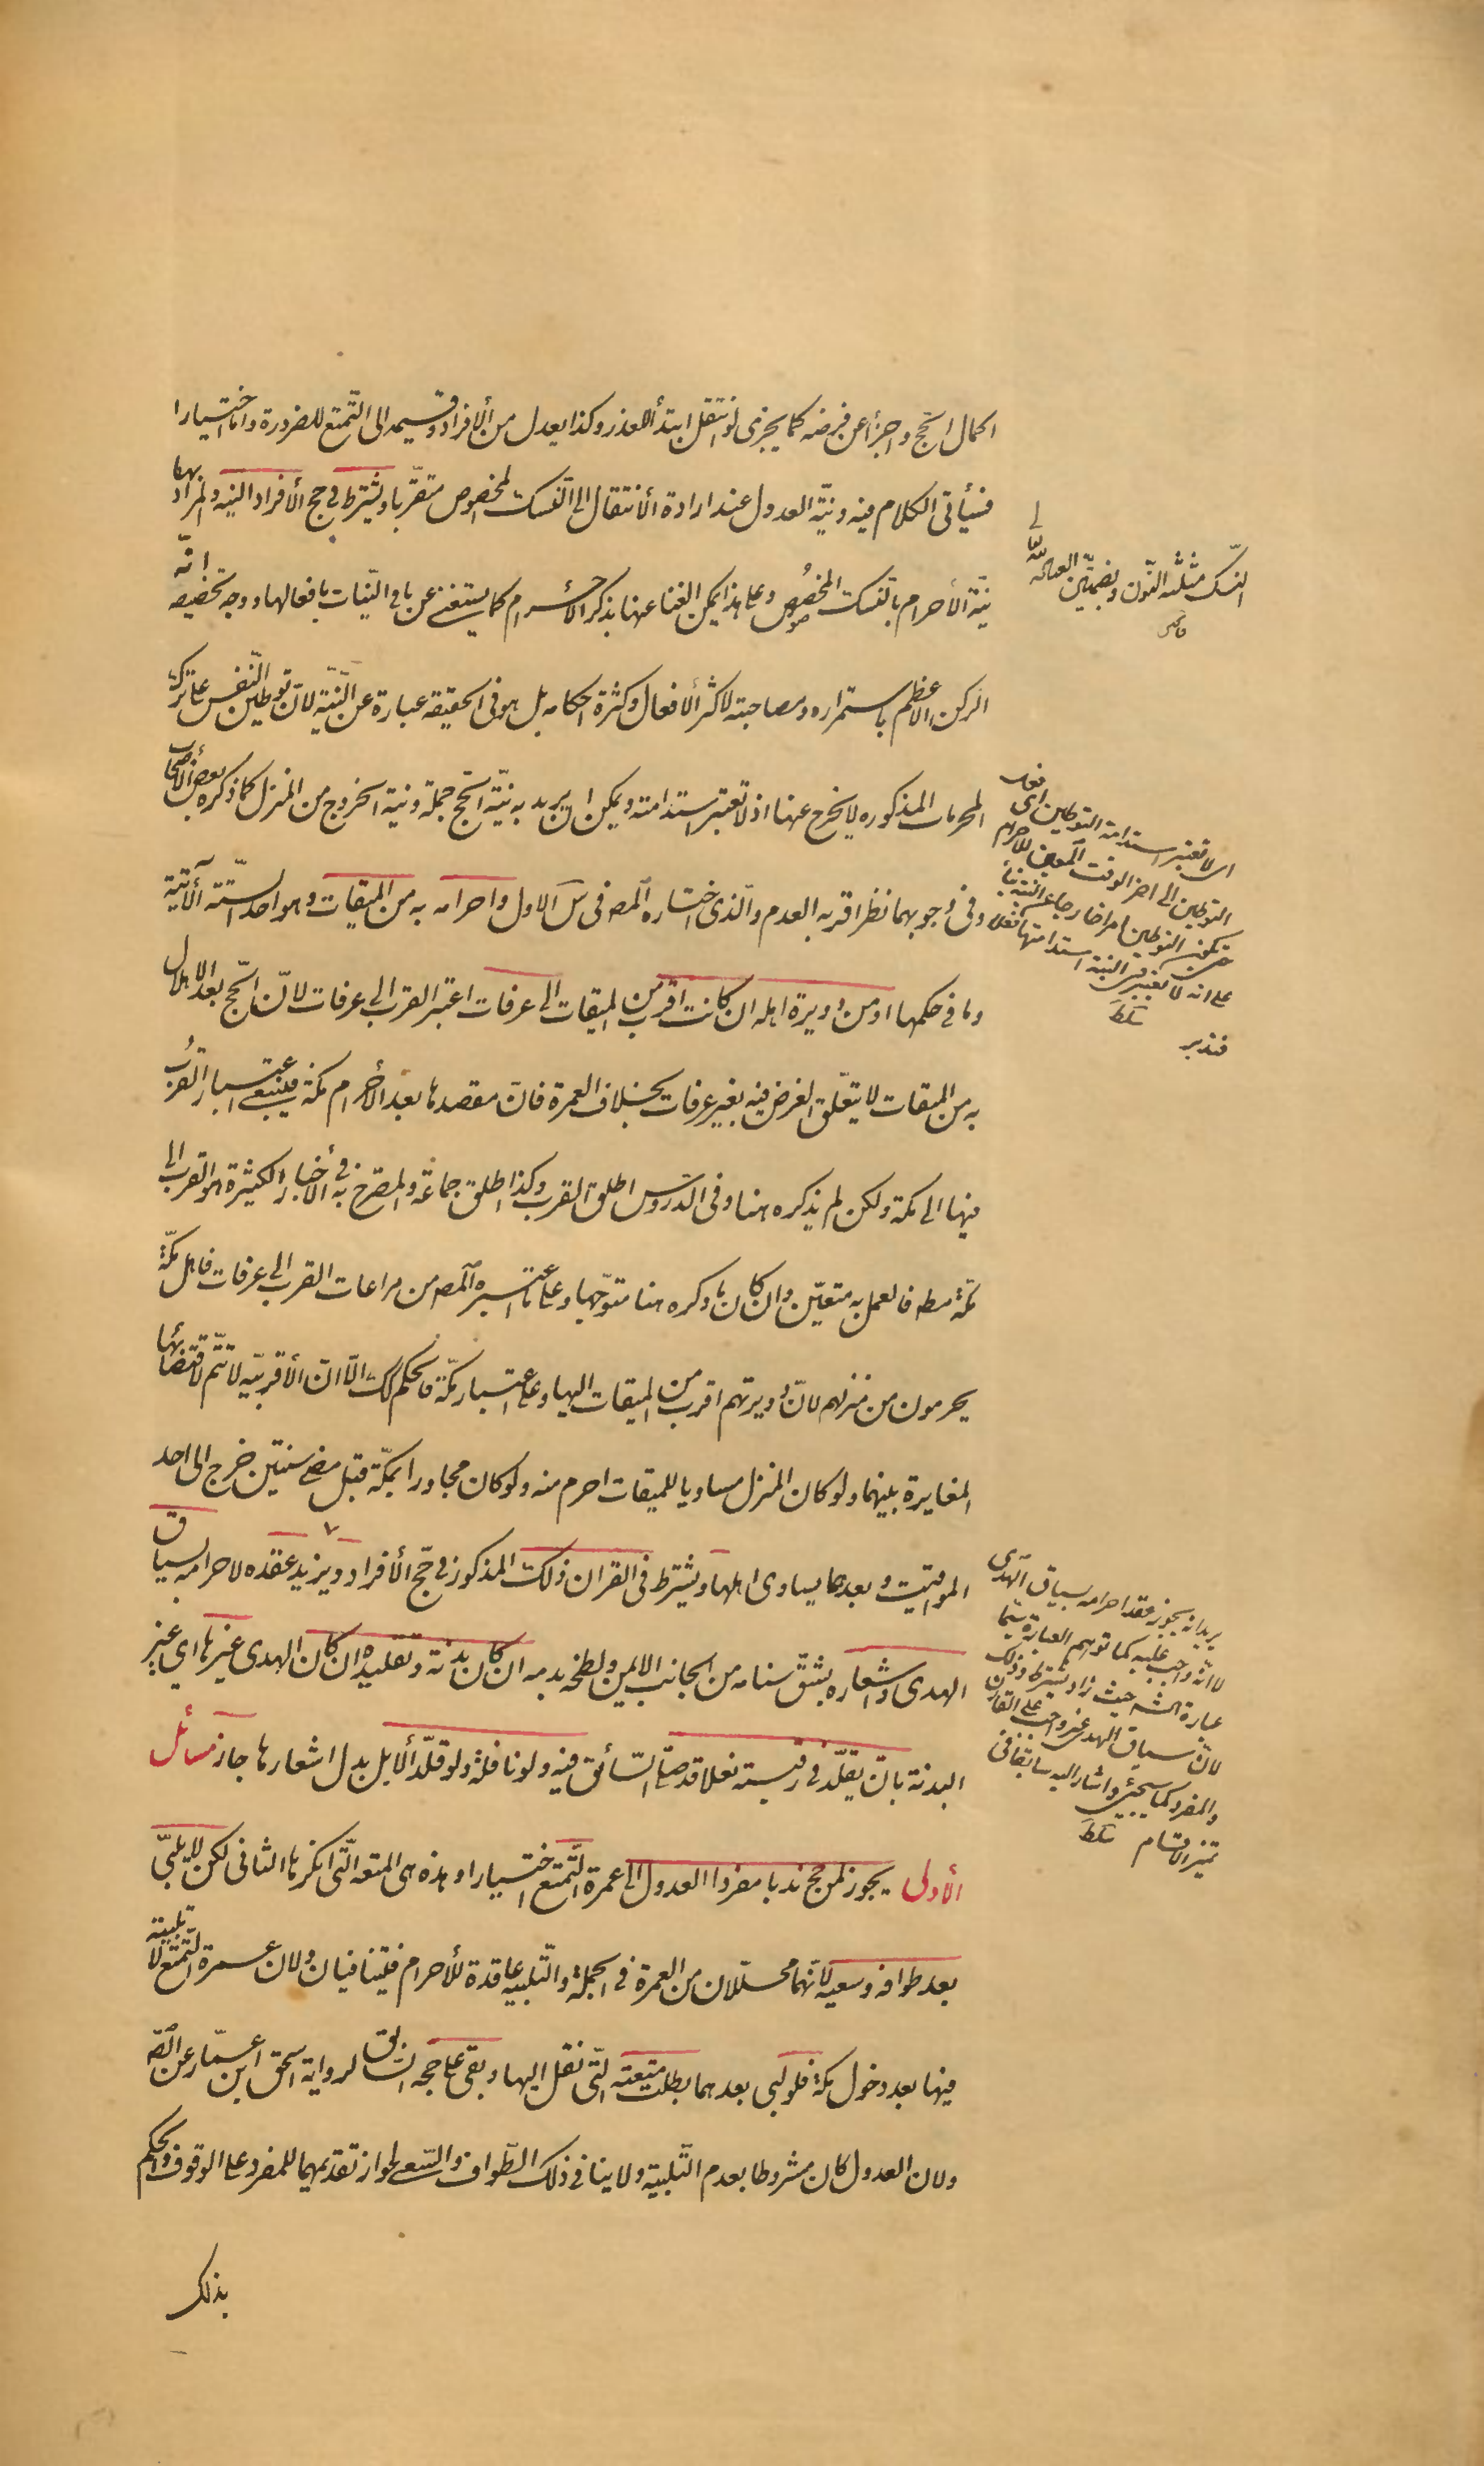 اكمال الحج واجزأ عن فرضه كما يجزى لو انتقل ابتدأ للعذر وكذا يعدل من الأفراد وقسيمه الى التمتع للضرورة واما اختيارا
فسيأتى الكلام فيه ونيّة العدول عند ارادة الأنتقال الى النسك المخصوص متقربا ويشترط فى حج الأفراد النية والمراد بها
نيّة الأحرام بالنسك المخصوص وعلى هذا يمكن الغنا عنها بذكر الأحرام كما يستغنى عن باقى النيّات بافعالها ووجه تخصيصه انّه
الركن الأعظم باستمراره ومصاحبته لاكثر الأفعال وكثرة احكامه بل هو فى الحقيقة عبارة عن النيّة لانّ توطين النفس على ترك
المحرمات المذكوره لا يخرج عنها اذ لا تعتبر استدامته ويمكن ان يريد به نيّة الحج جملة ونية الخروج من المنزل كما ذكره بعض الأصحاب
وفى وجوبهما نظر اقربه العدم والّذى اختاره المص فى س الاول واحرامه به من الميقات وهو احد السّتة الأتية
وما فى حكمها او من دويرة اهله ان كانت اقرب من الميقات الى عرفات اعتبر القرب الى عرفات لانّ الحج بعد الاهلال
به من الميقات لا يتعلّق الغرض فيه بغير عرفات بخلاف العمرة فانّ مقصدها بعد الأحرام مكة فينبغى اعتبار القرب
فيها الى مكة ولكن لم يذكره هنا وفى الدروس اطلق القرب وكذا اطلق جماعة والمصرّح به فى الأخبار الكثيرة هو القرب الى
مكة مطلقا فالعمل به متعيّن وان كان ما ذكره هنا متوجّها وعلى ما اعتبره المص من مراعات القرب الى عرفات فاهل مكّة
يحرمون من منزلهم لانّ دويرتهم اقرب من الميقات اليها وعلى اعتبار مكّة فالحكم كذلك الّا انّ الأقربيّة لا تتّم لاقتضائها
المغايرة بينهما ولو كان المنزل مساويا للميقات احرم منه ولو كان مجاورا بمكّة قبل مضى سنتين خرج الى احد
المواقيت وبعدهما يساوى اهلها ويشترط فى القران ذلك المذكور فى حج الأفراد ويزيد عقده لاحرامه بسياق
الهدى واشعاره بشقّ سنامه من الجانب الايمن ولطخه بدمه ان كان بدنة وتقليده ان كان الهدى غيرها اى غير
البدنة بان يقلّد فى رقبته نعلا قد صلّى السّائق فيه ولو نافلة ولو قلّد الأبل بدل اشعارها جاز مسائل
الأولى يجوز لمن حج ندبا مفردا العدول الى عمرة التّمتع اختيارا وهذه هى المتعه التّى انكرها الثانى لكن لا يلبّى
بعد طوافه وسعيه لانّهما محلّلان من العمرة فى الجملة والتّلبيه عاقدة للأحرام فيتنافيان ولان عمرة التّمتع لا تلبية
فيها بعد دخول مكة فلو لبى بعدهما بطلت متعته التّى نقل اليها وبقى على حجه السّابق لرواية اسحق ابن عمّار عن الصّ
ولان العدول كان مشروطا بعدم التّلبية ولا ينافى ذلك الطّواف والسّعى لجواز تقديمهما للمفرد على الوقوف والحكم
بذلك
النسك مثلثه النّون وبضمتين العباده لله
اى لا تعتبر استدامة التوطين
التوطين الى اخر الوقت للاحرام
على انه لا يعتبر فى النية استدامتها
فتدبر سلط
يريد انه يجوز عقد احرامه بسياق الهدى
لا انّه واجب عليه كما توهم العبارة سيّما
عبارة الشه حيث زاد يشترط وذلك
لانّ سياق الهدى غير واجب على القارن
والمفرد كما سيجئ واشار اليه سابقا فى
تميز الاقسام سلط